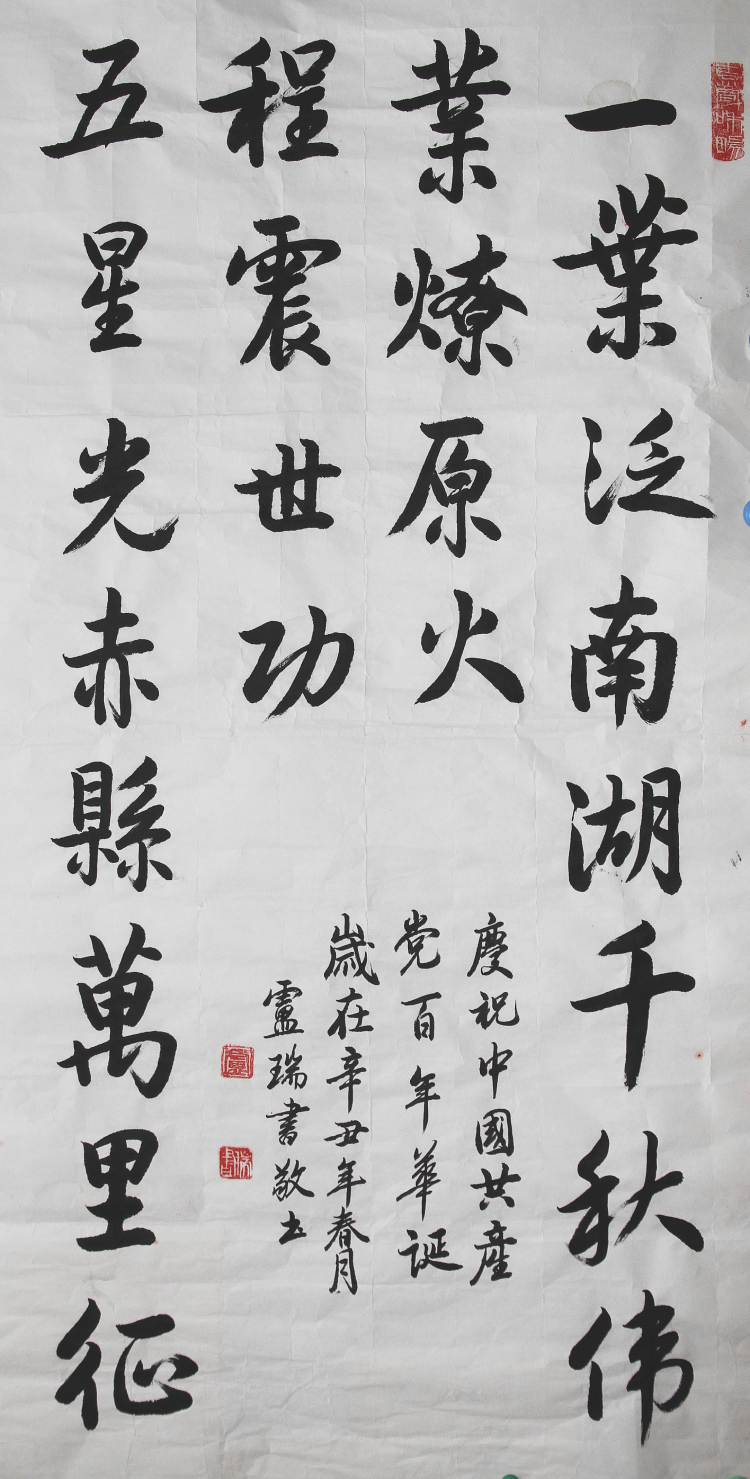 一葉泛南湖千秋伟
業燎原火
五星光赤縣萬里征
程震世功
慶祝中國共產
党百年華誕
歲在辛丑年春月
盧瑞書敬书
惠風和暢